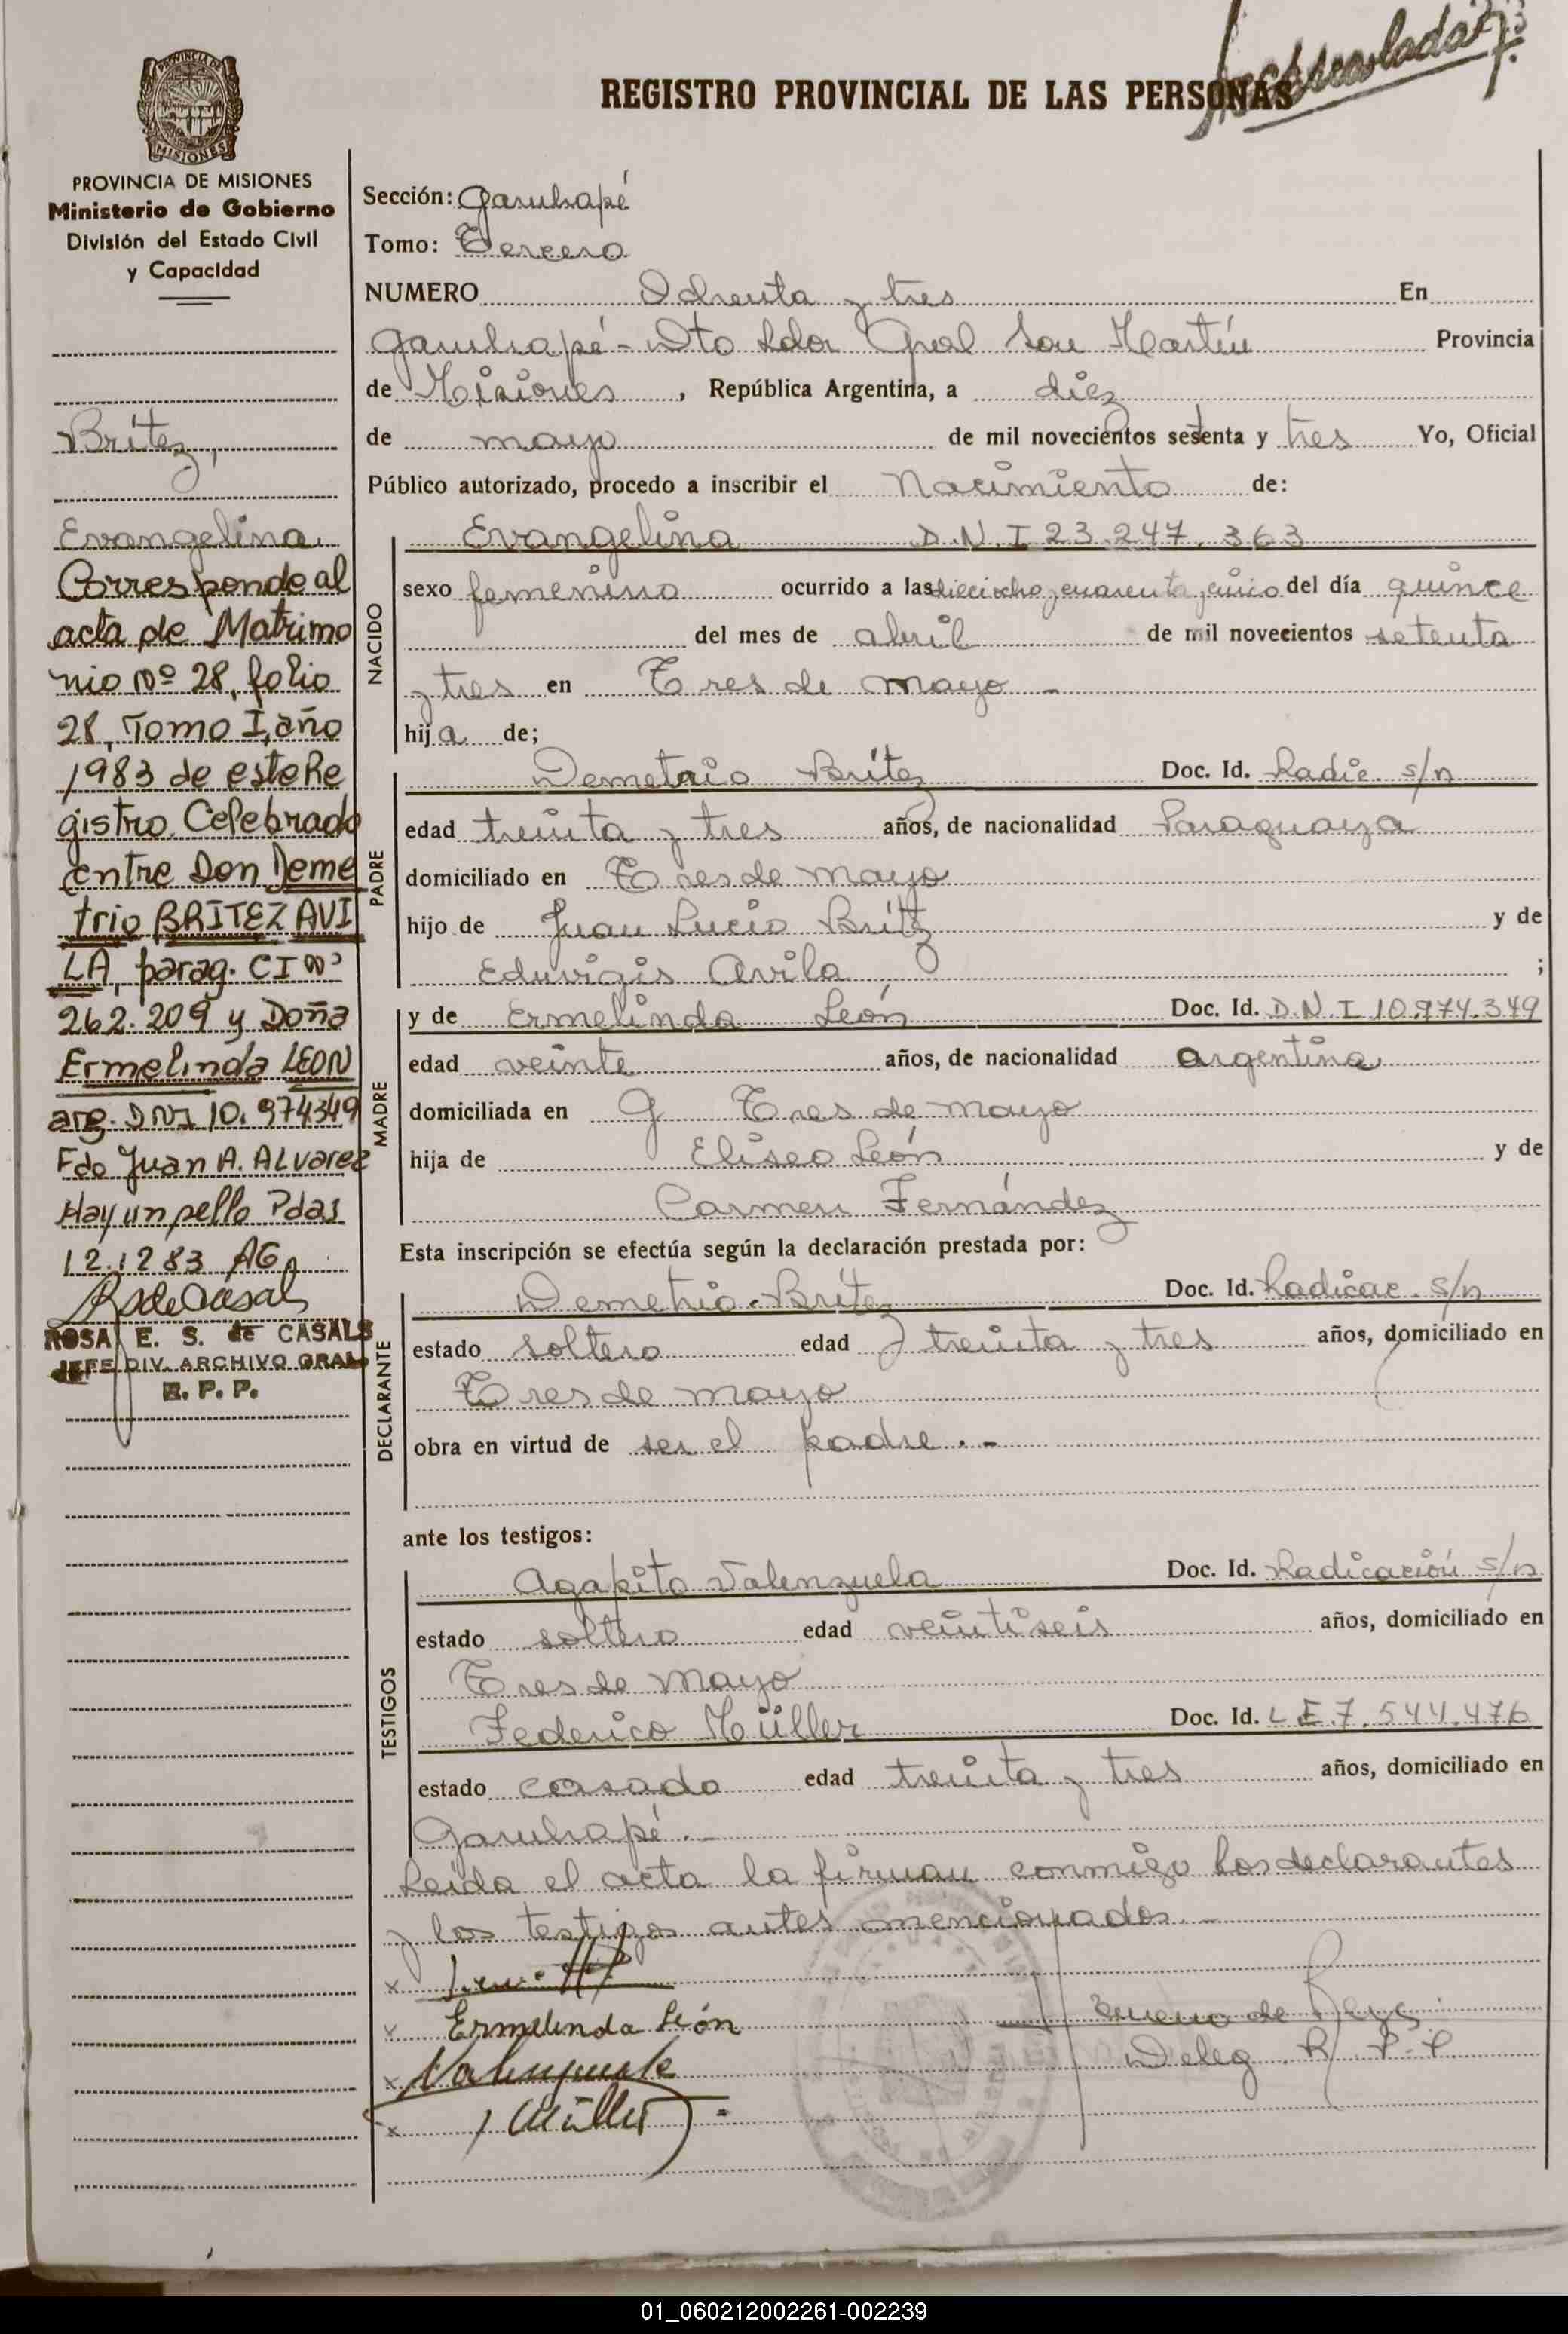 REGISTRO PROVINCIAL DE LAS PERSONAS
PROVINCIA DE
MISIONES
PROVINCIA DE MISIONES
Ministerio de Gobierno
División del Estado Civil
y Capacidad
Britez,
Evangelina
Corresponde al
acta de Matrimo
nio Nº 28, folio
28, Tomo I, año
1983 de este Re
gistro. Celebrado
entre Don Deme
trio BRITEZ AVI
LA, parag. CI Nº
262.209 y Doña
Ermelinda LEON
arg. DNI 10.974349
Fdo Juan A. Alvarez
Hay un sello Pdas
12.12 83 AG
ROSA E. S. de CASALS
JEFE DIV. ARCHIVO GRAL
R. P. P.
Sección: Garuhapé
Tomo: Tercero
NUMERO Ochenta y tres En
Garuhapé - Dto Ldor Gral San Martín Provincia
de Misiones, República Argentina, a diez
de mayo de mil novecientos setenta y tres Yo, Oficial
Público autorizado, procedo a inscribir el Nacimiento de:
NACIDO
Evangelina D.N.I 23.247.363
sexo femenino ocurrido a las dieciocho y cuarenta y cinco del día quince
del mes de abril de mil novecientos setenta
y tres en Tres de mayo -
hija de;
PADRE
Demetrio Britez Doc. Id. Radic. s/n
edad treinta y tres años, de nacionalidad Paraguaya
domiciliado en Tres de mayo
hijo de Juan Lucio Britez y de
Eduvigis Avila ;
MADRE
y de Ermelinda León Doc. Id. D.N.I 10.974.349
edad veinte años, de nacionalidad argentina
domiciliada en Tres de mayo
hija de Eliseo León y de
Carmen Fernández
Esta inscripción se efectúa según la declaración prestada por:
DECLARANTE
Demetrio Britez Doc. Id. Radicac. s/n
estado soltero edad treinta y tres años, domiciliado en
Tres de mayo
obra en virtud de ser el padre. -
ante los testigos:
TESTIGOS
Agapito Valenzuela Doc. Id. Radicación s/n
estado soltero edad veintiseis años, domiciliado en
Tres de Mayo
Federico Müller Doc. Id. L.E.7.544.476
estado casado edad treinta y tres años, domiciliado en
Garuhapé. -
Leida el acta la firman conmigo los declarantes
y los testigos antes mencionados. -
x
x Ermelinda León
x Valenzuela
x Müller
Deleg R P.P
01_060212002261-002239